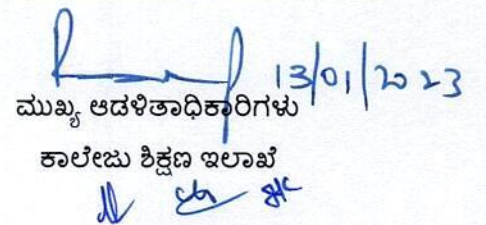 13/01/2023
ಮುಖ್ಯ ಆಡಳಿತಾಧಿಕಾರಿಗಳು
ಕಾಲೇಜು ಶಿಕ್ಷಣ ಇಲಾಖೆ